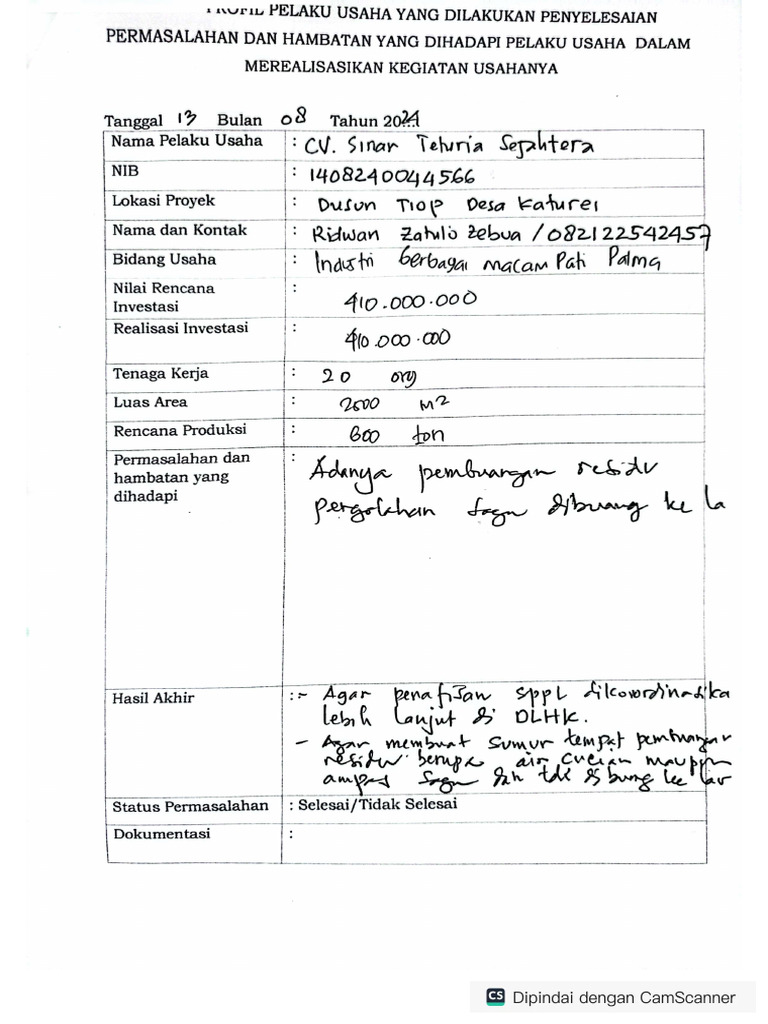 PROFIL PELAKU USAHA YANG DILAKUKAN PENYELESAIAN
PERMASALAHAN DAN HAMBATAN YANG DIHADAPI PELAKU USAHA DALAM
MEREALISASIKAN KEGIATAN USAHANYA
Tanggal 13 Bulan 08 Tahun 2024
Nama Pelaku Usaha : CV. Sinar Teturia Sejahtera
NIB : 1408240044566
Lokasi Proyek : Dusun Tiop Desa Katurei
Nama dan Kontak : Ridwan Zatulö Zebua / 082122542457
Bidang Usaha : Industri berbagai macam Pati Palma
Nilai Rencana Investasi : 410.000.000
Realisasi Investasi : 410.000.000
Tenaga Kerja : 20 org
Luas Area : 2500 M2
Rencana Produksi : 600 ton
Permasalahan dan hambatan yang dihadapi : Adanya pembuangan residu
pengolahan sagu dibuang ke la
Hasil Akhir :- Agar penafisan SPPL dikoordinasika
lebih lanjut di DLHK.
- Agar membuat sumur tempat pembuangan
residu berupa air cucian maupun
ampas sagu dan tdk di buang ke lau
Status Permasalahan : Selesai/Tidak Selesai
Dokumentasi :
CS Dipindai dengan CamScanner